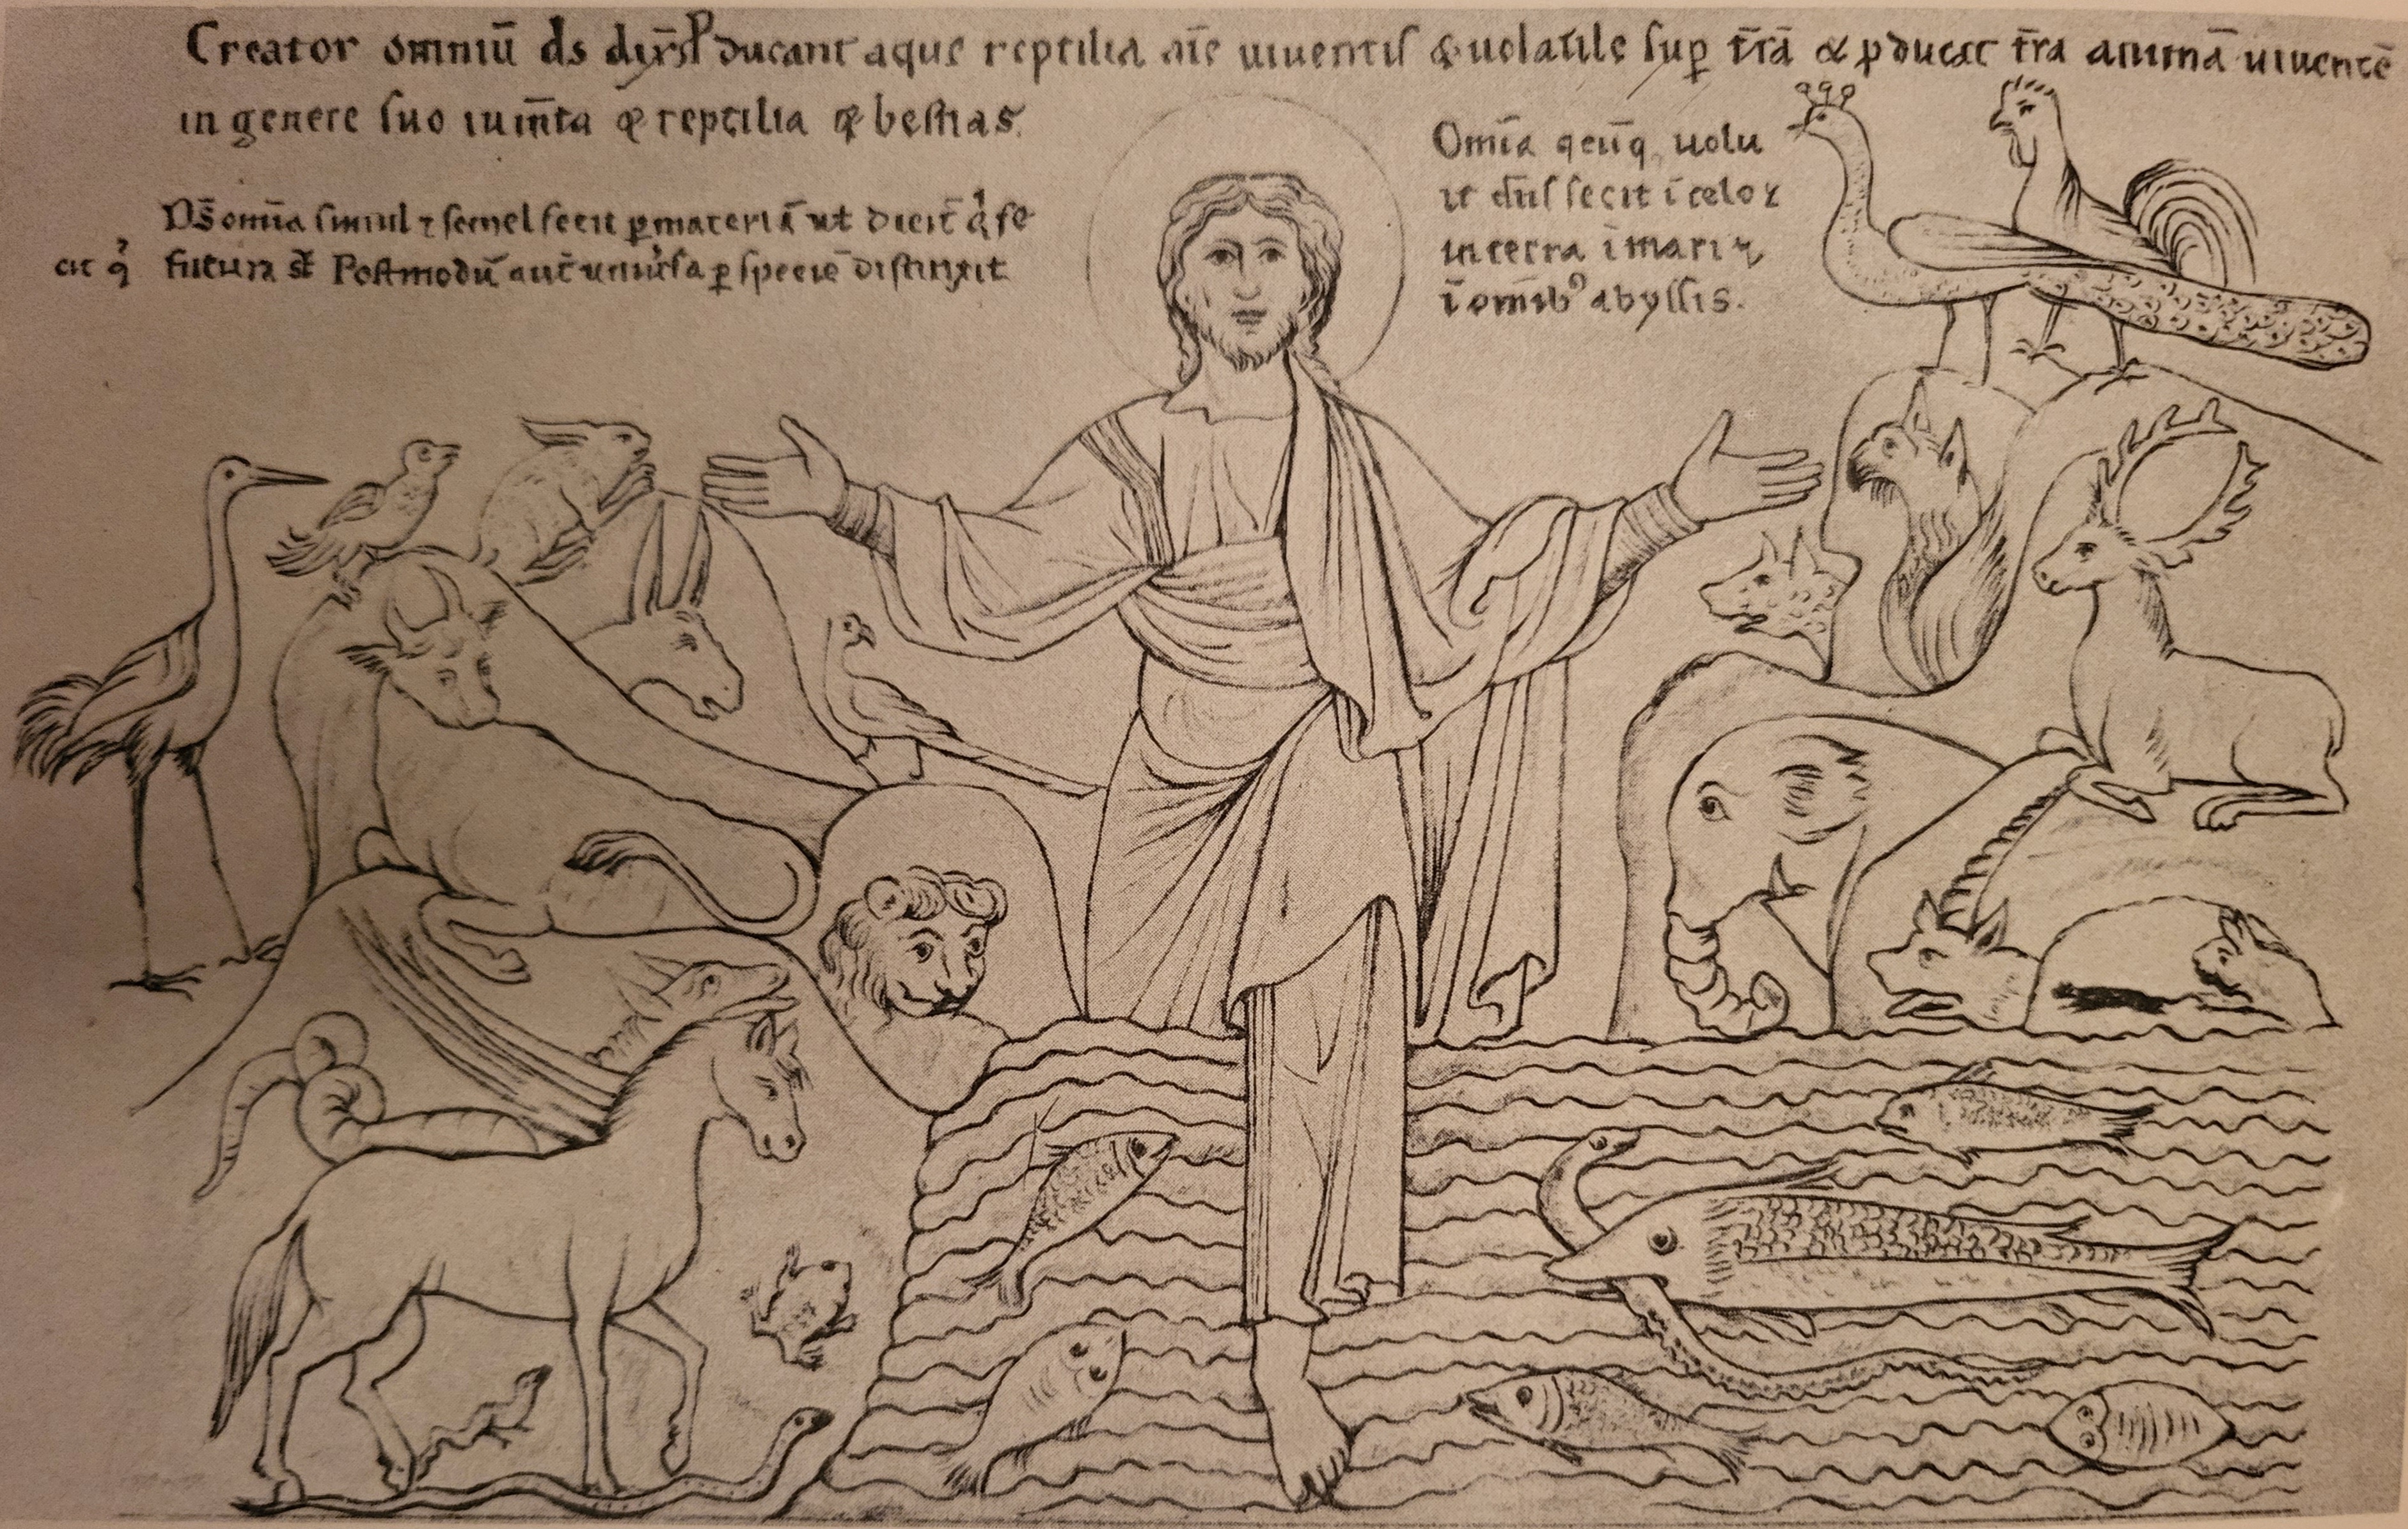 Creator omniū ds dix̄ ꝓducant aque reptilia aīe uiuentis & uolatile sup̄ t̄rā & ꝓducat t̄ra animā uiuentē
in genere suo ium̄ta & reptilia & bestias.
Ds̄ omīa simul ⁊ semel fecit ꝑ materiā ut dicit᷑ q̇ fe
cit q̓ futura st̄ Postmodū aut̄ uniu͛sa ꝑ speciē distinxit
Omīa qcūq, uolu
it dn̄s fecit ī celo ⁊
in terra ī mari ⁊
ī omīb⁹ abyssis.